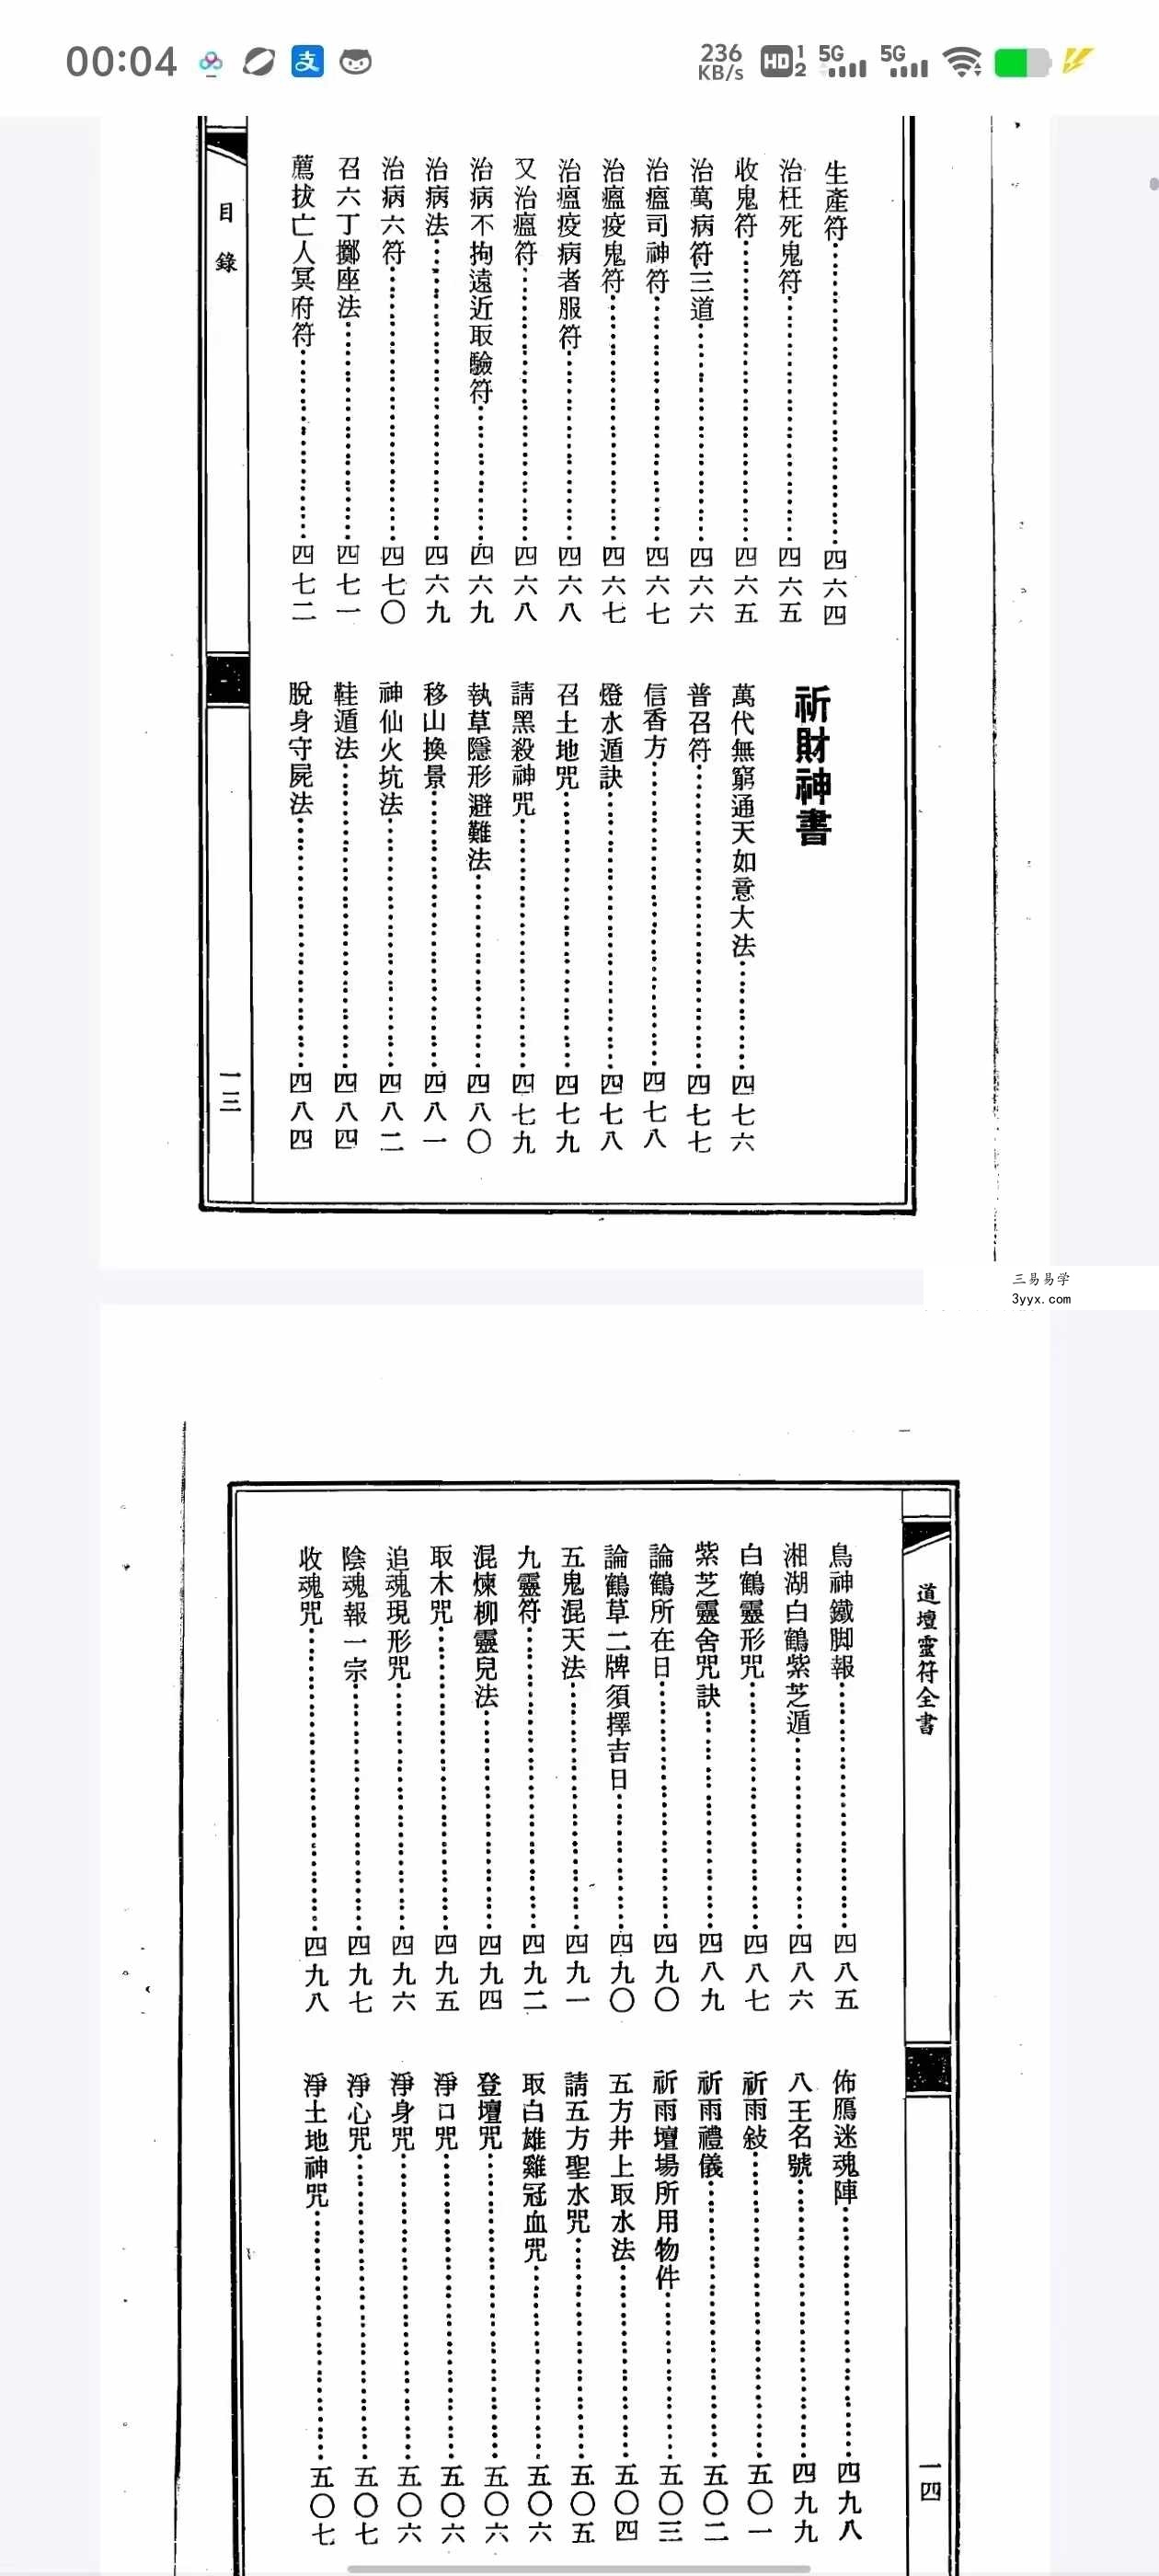 00:04
236 KB/s
HD 1 2
5G
5G
生產符四六四
治枉死鬼符四六五
收鬼符四六五
治萬病符三道四六六
治瘟司神符四六七
治瘟疫鬼符四六七
治瘟疫病者服符四六八
又治瘟符四六八
治病不拘遠近取驗符四六九
治病法四六九
治病六符四七〇
召六丁擲座法四七一
薦拔亡人冥府符四七二
祈財神書
萬代無窮通天如意大法四七六
普召符四七七
信香方四七八
燈水遁訣四七八
召土地咒四七九
請黑殺神咒四七九
執草隱形避難法四八〇
移山換景四八一
神仙火坑法四八二
鞋遁法四八四
脫身守屍法四八四
目錄
一三
三易易学
3yyx.com
道壇靈符全書
一四
鳥神鐵脚報四八五
湘湖白鶴紫芝遁四八六
白鶴靈形咒四八七
紫芝靈舍咒訣四八九
論鶴所在日四九〇
論鶴草二牌須擇吉日四九〇
五鬼混天法四九一
九靈符四九二
混煉柳靈兒法四九四
取木咒四九五
追魂現形咒四九六
陰魂報一宗四九七
收魂咒四九八
佈鴈迷魂陣四九八
八王名號四九九
祈雨敍五〇一
祈雨禮儀五〇二
祈雨壇場所用物件五〇三
五方井上取水法五〇四
請五方聖水咒五〇五
取白雄雞冠血咒五〇六
登壇咒五〇六
淨口咒五〇六
淨身咒五〇六
淨心咒五〇七
淨土地神咒五〇七